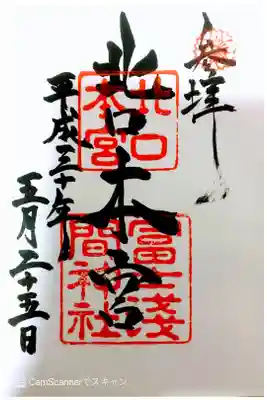 参拝
北口本宮
北口
本宮
冨士淺
間神社
平成三十年
五月二十五日
CamScannerでスキャン